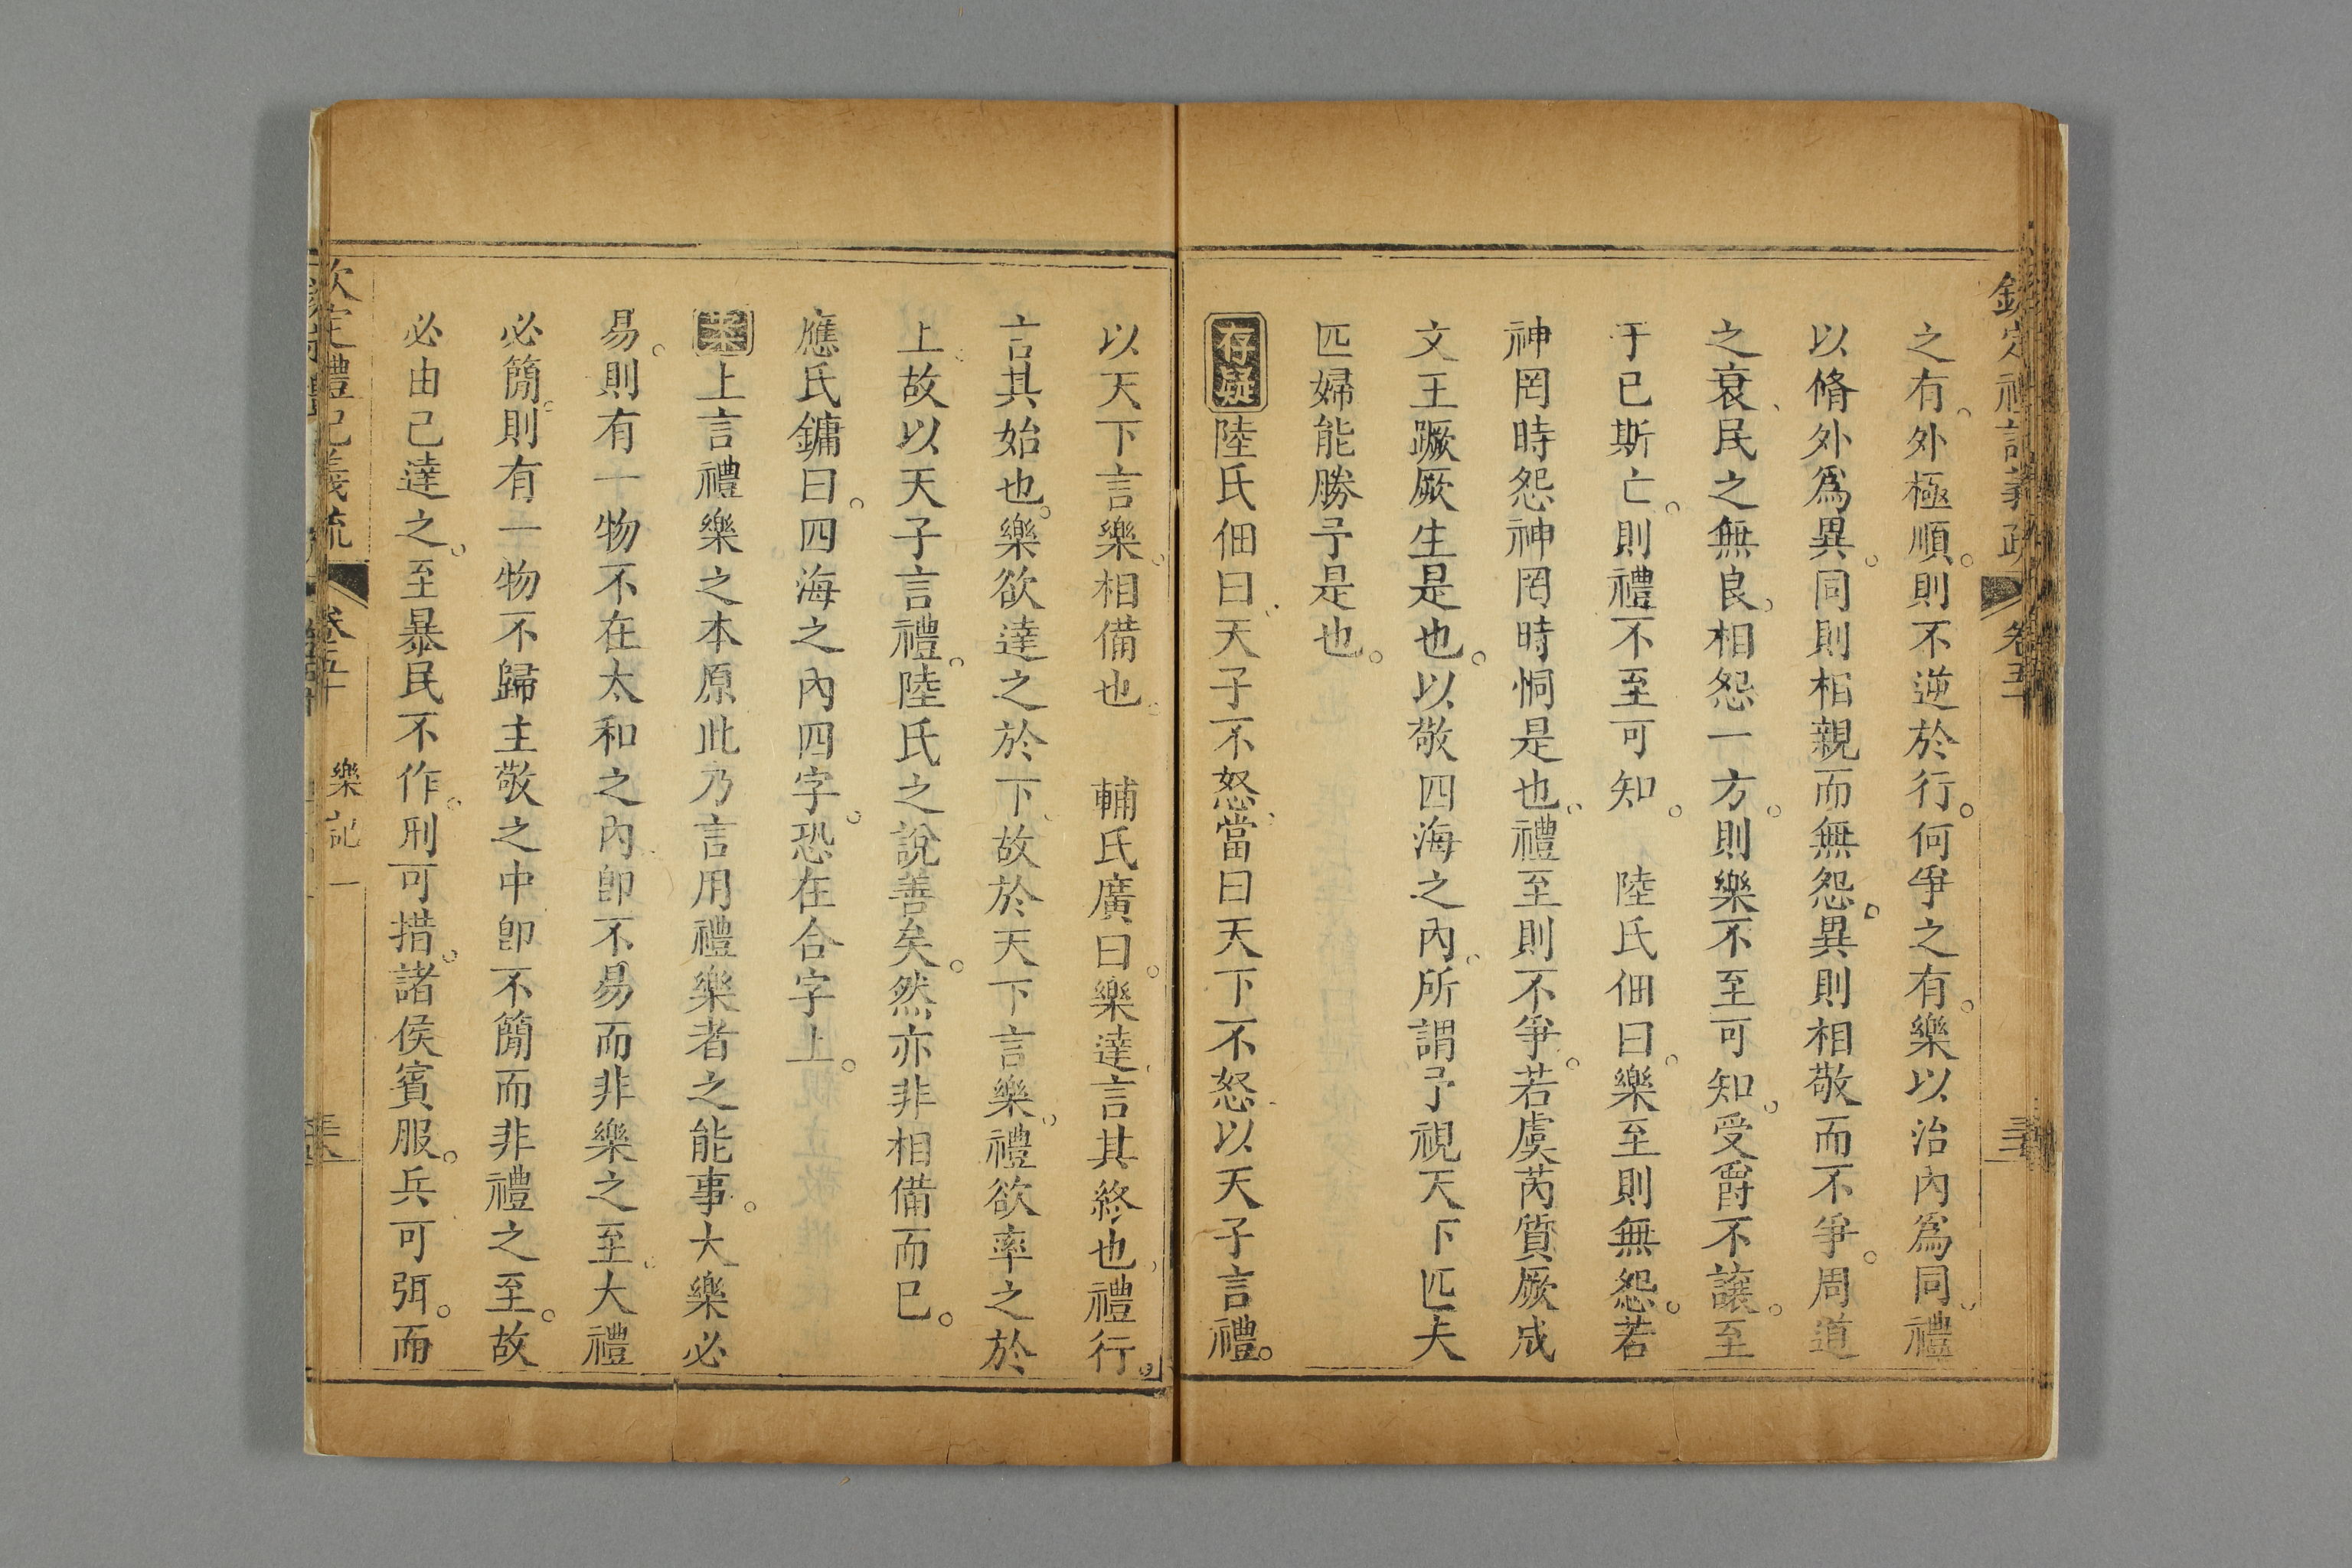 欽定禮記義疏 卷五十
之有外極順則不逆於行何爭之有樂以治內爲同禮
以脩外爲異同則相親而無怨異則相敬而不爭周道
之衰民之無良相怨一方則樂不至可知受爵不讓至
于已斯亡則禮不至可知 陸氏佃曰樂至則無怨若
神罔時怨神罔時恫是也禮至則不爭若虞芮質厥成
文王蹶厥生是也以敬四海之內所謂予視天下匹夫
匹婦能勝予是也
存疑陸氏佃曰天子不怒當曰天下不怒以天子言禮
以天下言樂相備也 輔氏廣曰樂達言其終也禮行
言其始也樂欲達之於下故於天下言樂禮欲率之於
上故以天子言禮陸氏之說善矣然亦非相備而已
應氏鏞曰四海之內四字恐在合字上
案上言禮樂之本原此乃言用禮樂者之能事大樂必
易則有一物不在太和之內卽不易而非樂之至大禮
必簡則有一物不歸主敬之中卽不簡而非禮之至故
必由己達之至暴民不作刑可措諸侯賓服兵可弭而
欽定禮記義疏 卷五十 樂記一